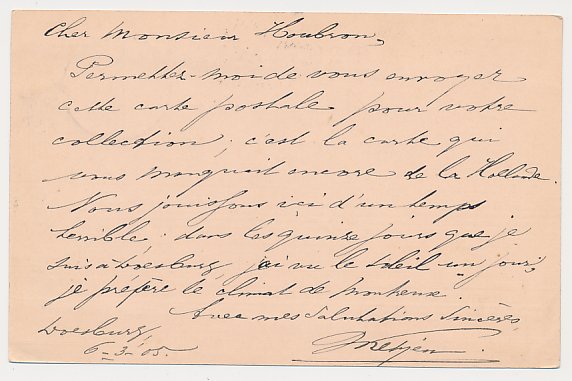 Cher Monsieur Houbron,
Permettez-moi de vous envoyer
cette carte postale pour votre
collection; c'est la carte qui
vous manquait encore de la Hollande.
Nous jouissons ici d'un temps
terrible; dans les quinze jours que je
suis a Doesburg, j'ai vu le soleil un jour,
je préfère le climat de Montreux.
Avec mes salutations sincères,
Doesburg,
6-3-05.